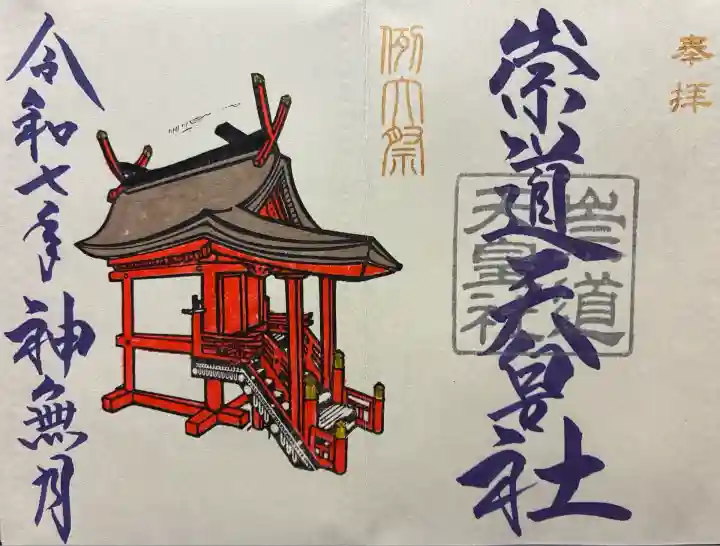 奉拝
崇道天皇社
崇道
天皇社
例大祭
令和七年 神無月